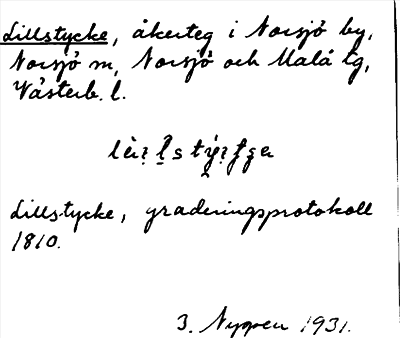 Lillstycke, åkerteg i Norsjö by,
Norsjö sn, Norsjö och Malå tg,
Västerb. l.
Lillstycke, graderingsprotokoll
1810.
3. Nygren 1931.